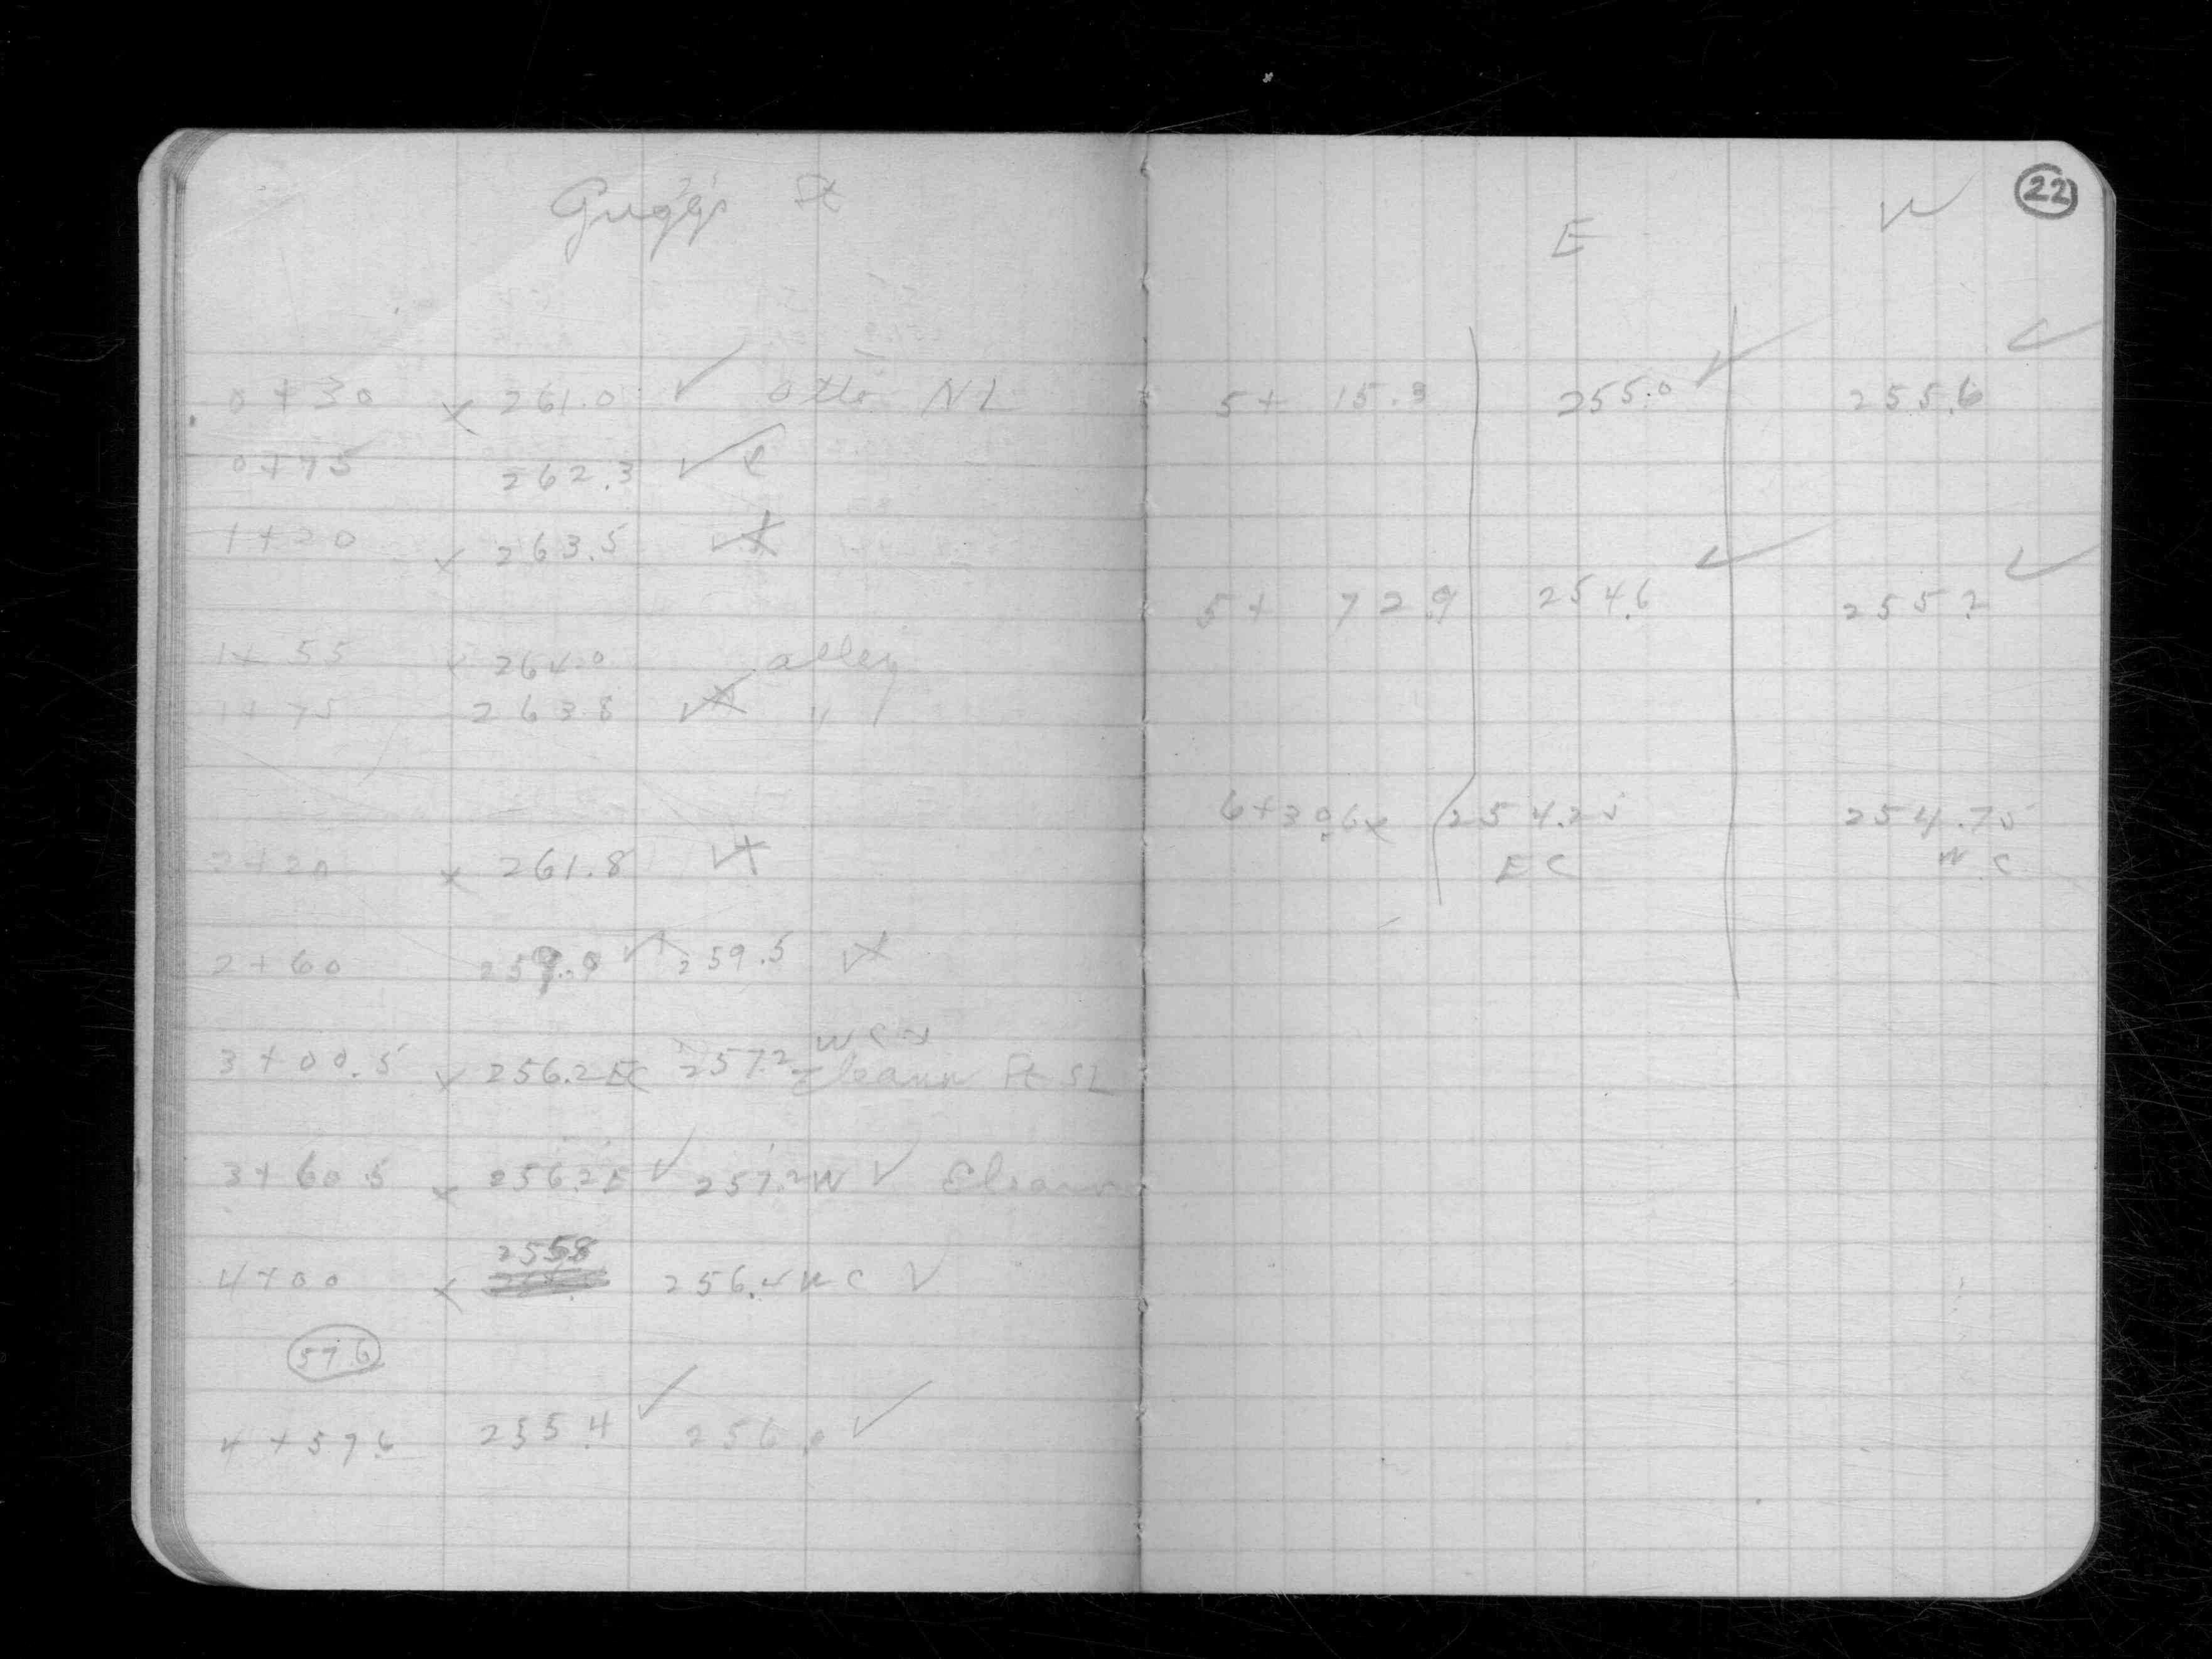 St
0+30 x 261.0 ✓ Otto NL
0+75 262.3 ✓ x
1+20 x 263.5 ✓ x
1+55 x 264.0 alley
1+75 263.8 ✓ x "
2+20 x 261.8 ✓ x
2+60 259.9 ✓ x 259.5 ✓ x
WC x
3+00.5 x 256.2 EC 257.2 St SL
3+60.5 x 256.2 E ✓ 257.2 W ✓
255.8
4+00 x 256.4 WC ✓
57.6
4+57.6 255.4 ✓ 256.0 ✓
22
E W
5+ 15.3 255.0 ✓ 255.6 ✓
5+ 72.9 254.6 ✓ 255.2 ✓
6+30.6 x 254.25 254.75
EC WC